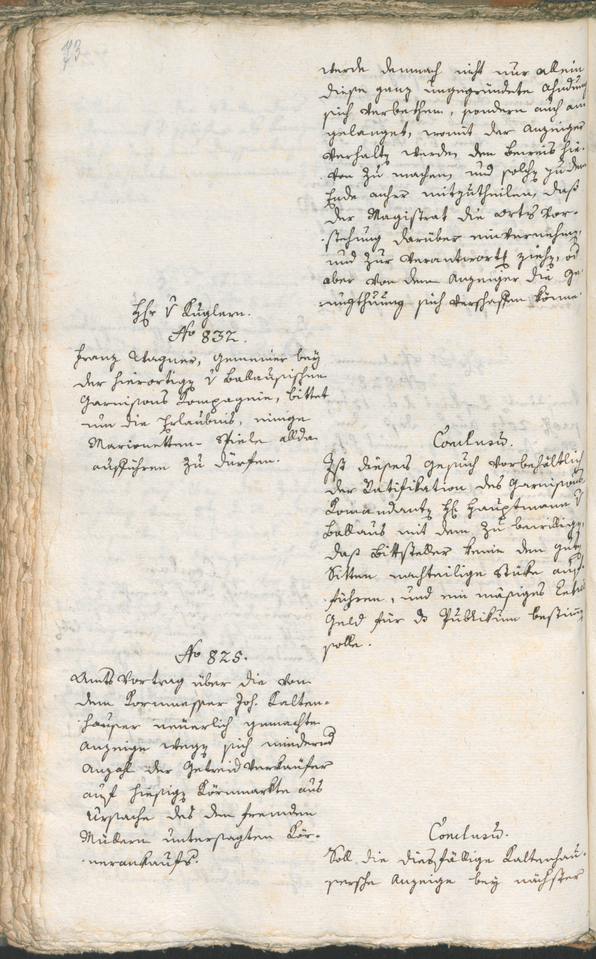 73
werde demnach nicht nur allein
diese ganz ungegründete Ahndung
sich verbethen, sondern auch an
gelanget, womit der Anzeiger
verhaltn werde, den Beweis hie-
von zu machen, und solchn zu dem
Ende anher mitzutheilen, daß
der Magistrat die Orts Vor-
stehung darüber einvernehmen,
und zur Verantwortg ziehn, od
aber von dem Anzeiger die Ge-
nugthuung sich verschaffen könne.
Hr v Kuglern.
No 832.
Franz Wagner, Gemeiner bey
der hierortign v Ballausischen
Garnisons Compagnie, bittet
um die Erlaubnis, einige
Marionetten-Spiele allda
aufführen zu dürfen.
Conclusu.
Ist dieses Gesuch vorbehältlich
der Ratifikation des Garnisons
Komandantn H Hauptmann v
Ballaus mit dem zu bewilligen,
daß Bittsteller keine den guten
Sitten nachteilige Stüke auf-
führen, und ein mäsiges
Geld für ds Publikum bestimmen
solle.
No 825.
Amts Vortrag über die von
dem Kornmesser Joh. Kalten-
hauser neuerlich gemachte
Anzeige wegn sich mindernd
Anzahl der Getreid Verkäufer
auf hiesign Körnmarkte aus
Ursache des den fremden
Müllern untersagten Kör-
nerankaufs.
Conclusu.
Soll die diesfällige Kaltenhau-
sersche Anzeige bey nächster